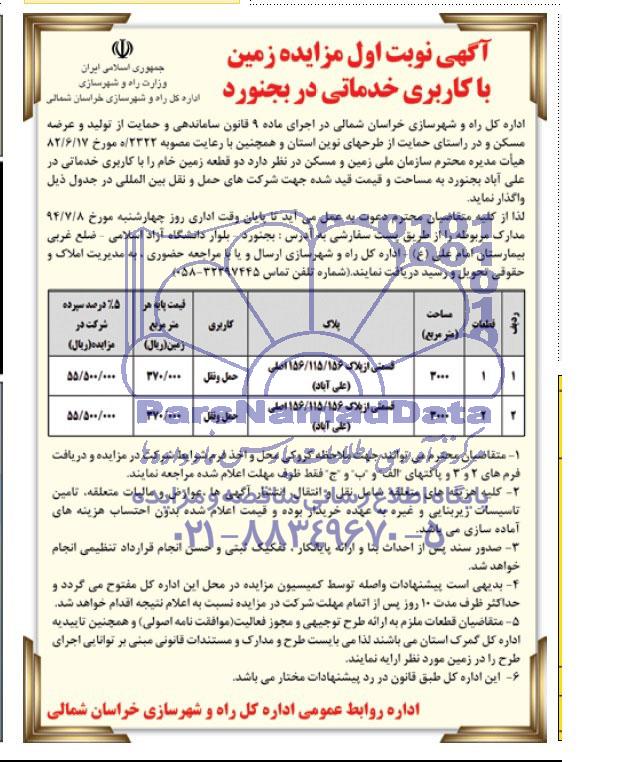 آگهی نوبت اول مزایده زمین
با کاربری خدماتی در بجنورد
جمهوری اسلامی ایران
وزارت راه و شهرسازی
اداره کل راه و شهرسازی خراسان شمالی
اداره کل راه و شهرسازی خراسان شمالی در اجرای ماده ۹ قانون ساماندهی و حمایت از تولید و عرضه
مسکن و در راستای حمایت از طرحهای نوین استان و همچنین با رعایت مصوبه ۵/۲۳۲۲ مورخ ۸۲/۶/۱۷
هیأت مدیره محترم سازمان ملی زمین و مسکن در نظر دارد دو قطعه زمین خام را با کاربری خدماتی در
علی آباد بجنورد به مساحت و قیمت قید شده جهت شرکت های حمل و نقل بین المللی در جدول ذیل
واگذار نماید.
لذا از کلیه متقاضیان محترم دعوت به عمل می آید تا پایان وقت اداری روز چهارشنبه مورخ ۹۴/۷/۸
مدارک مربوطه را از طریق پست سفارشی به آدرس : بجنورد - بلوار دانشگاه آزاد اسلامی - ضلع غربی
بیمارستان امام علی (ع) - اداره کل راه و شهرسازی ارسال و یا با مراجعه حضوری ، به مدیریت املاک و
حقوقی تحویل و رسید دریافت نمایند.(شماره تلفن تماس ۳۲۲۹۷۴۴۵-۰۵۸)
ردیف قطعات مساحت (متر مربع) پلاک کاربری قیمت پایه هر متر مربع زمین(ریال) ۵٪ درصد سپرده شرکت در مزایده(ریال)
۱ ۱ ۳۰۰۰ قسمتی از پلاک ۱۵۶/۱۱۵/۱۵۶ اصلی (علی آباد) حمل ونقل ۳۷۰/۰۰۰ ۵۵/۵۰۰/۰۰۰
۲ ۲ ۳۰۰۰ قسمتی از پلاک ۱۵۶/۱۱۵/۱۵۶ اصلی (علی آباد) حمل ونقل ۳۷۰/۰۰۰ ۵۵/۵۰۰/۰۰۰
ParsNamadData
۱- متقاضیان محترم می توانند جهت ملاحظه کروکی محل و اخذ فرم شرایط شرکت در مزایده و دریافت
فرم های ۲ و ۳ و پاکتهای "الف" و "ب" و "ج" فقط ظرف مهلت اعلام شده مراجعه نمایند.
۲- کلیه هزینه های متعلقه شامل نقل و انتقال، انتشار آگهی ها، عوارض و مالیات متعلقه، تامین
پایگاه اطلاع رسانی مناقصه و مزایده
تاسیسات زیربنایی و غیره به عهده خریدار بوده و قیمت اعلام شده بدون احتساب هزینه های
آماده سازی می باشد.
۰۲۱-۸۸۳۴۹۶۷۰-۵
۳- صدور سند پس از احداث بنا و ارائه پایانکار ، تفکیک ثبتی و حسن انجام قرارداد تنظیمی انجام
خواهد شد.
۴- بدیهی است پیشنهادات واصله توسط کمیسیون مزایده در محل این اداره کل مفتوح می گردد و
حداکثر ظرف مدت ۱۰ روز پس از اتمام مهلت شرکت در مزایده نسبت به اعلام نتیجه اقدام خواهد شد.
۵- متقاضیان قطعات ملزم به ارائه طرح توجیهی و مجوز فعالیت(موافقت نامه اصولی) و همچنین تاییدیه
اداره کل گمرک استان می باشند لذا می بایست طرح و مدارک و مستندات قانونی مبنی بر توانایی اجرای
طرح را در زمین مورد نظر ارایه نمایند.
۶- این اداره کل طبق قانون در رد پیشنهادات مختار می باشد.
اداره روابط عمومی اداره کل راه و شهرسازی خراسان شمالی